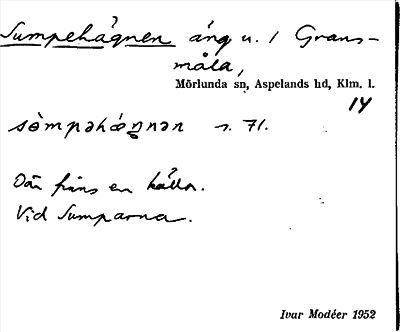 Sumpehägnen äng u. / Grans-
måla,
Mörlunda sn, Aspelands hd, Klm. l.
14
sòmpəhæ̀ŋnən s. 71.
Där finns en källa.
Vid Sumparna.
Ivar Modéer 1952